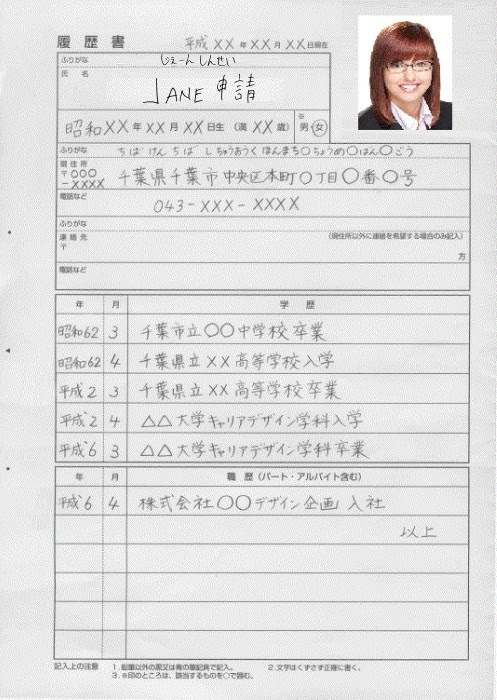 履歴書 平成XX年XX月XX日現在
ふりがな じぇーん しんせい
氏名 JANE 申請
昭和XX年XX月XX日生(満XX歳) ※ 男・女
ふりがな ちばけんちばしちゅうおうくほんまち〇ちょうめ〇ばん〇ごう
現住所
〒〇〇〇-XXXX 千葉県千葉市中央区本町〇丁目〇番〇号
電話など 043-XXX-XXXX
ふりがな
連絡先 (現住所以外に連絡を希望する場合のみ記入)
〒 方
電話など
年 月 学歴
昭和62 3 千葉市立〇〇中学校卒業
昭和62 4 千葉県立XX高等学校入学
平成2 3 千葉県立XX高等学校卒業
平成2 4 △△大学キャリアデザイン学科入学
平成6 3 △△大学キャリアデザイン学科卒業
年 月 職歴(パート・アルバイト含む)
平成6 4 株式会社〇〇デザイン企画 入社
以上
記入上の注意 1.鉛筆以外の黒又は青の筆記具で記入。 2.文字はくずさず正確に書く。
3.※印のところは、該当するものを〇で囲む。